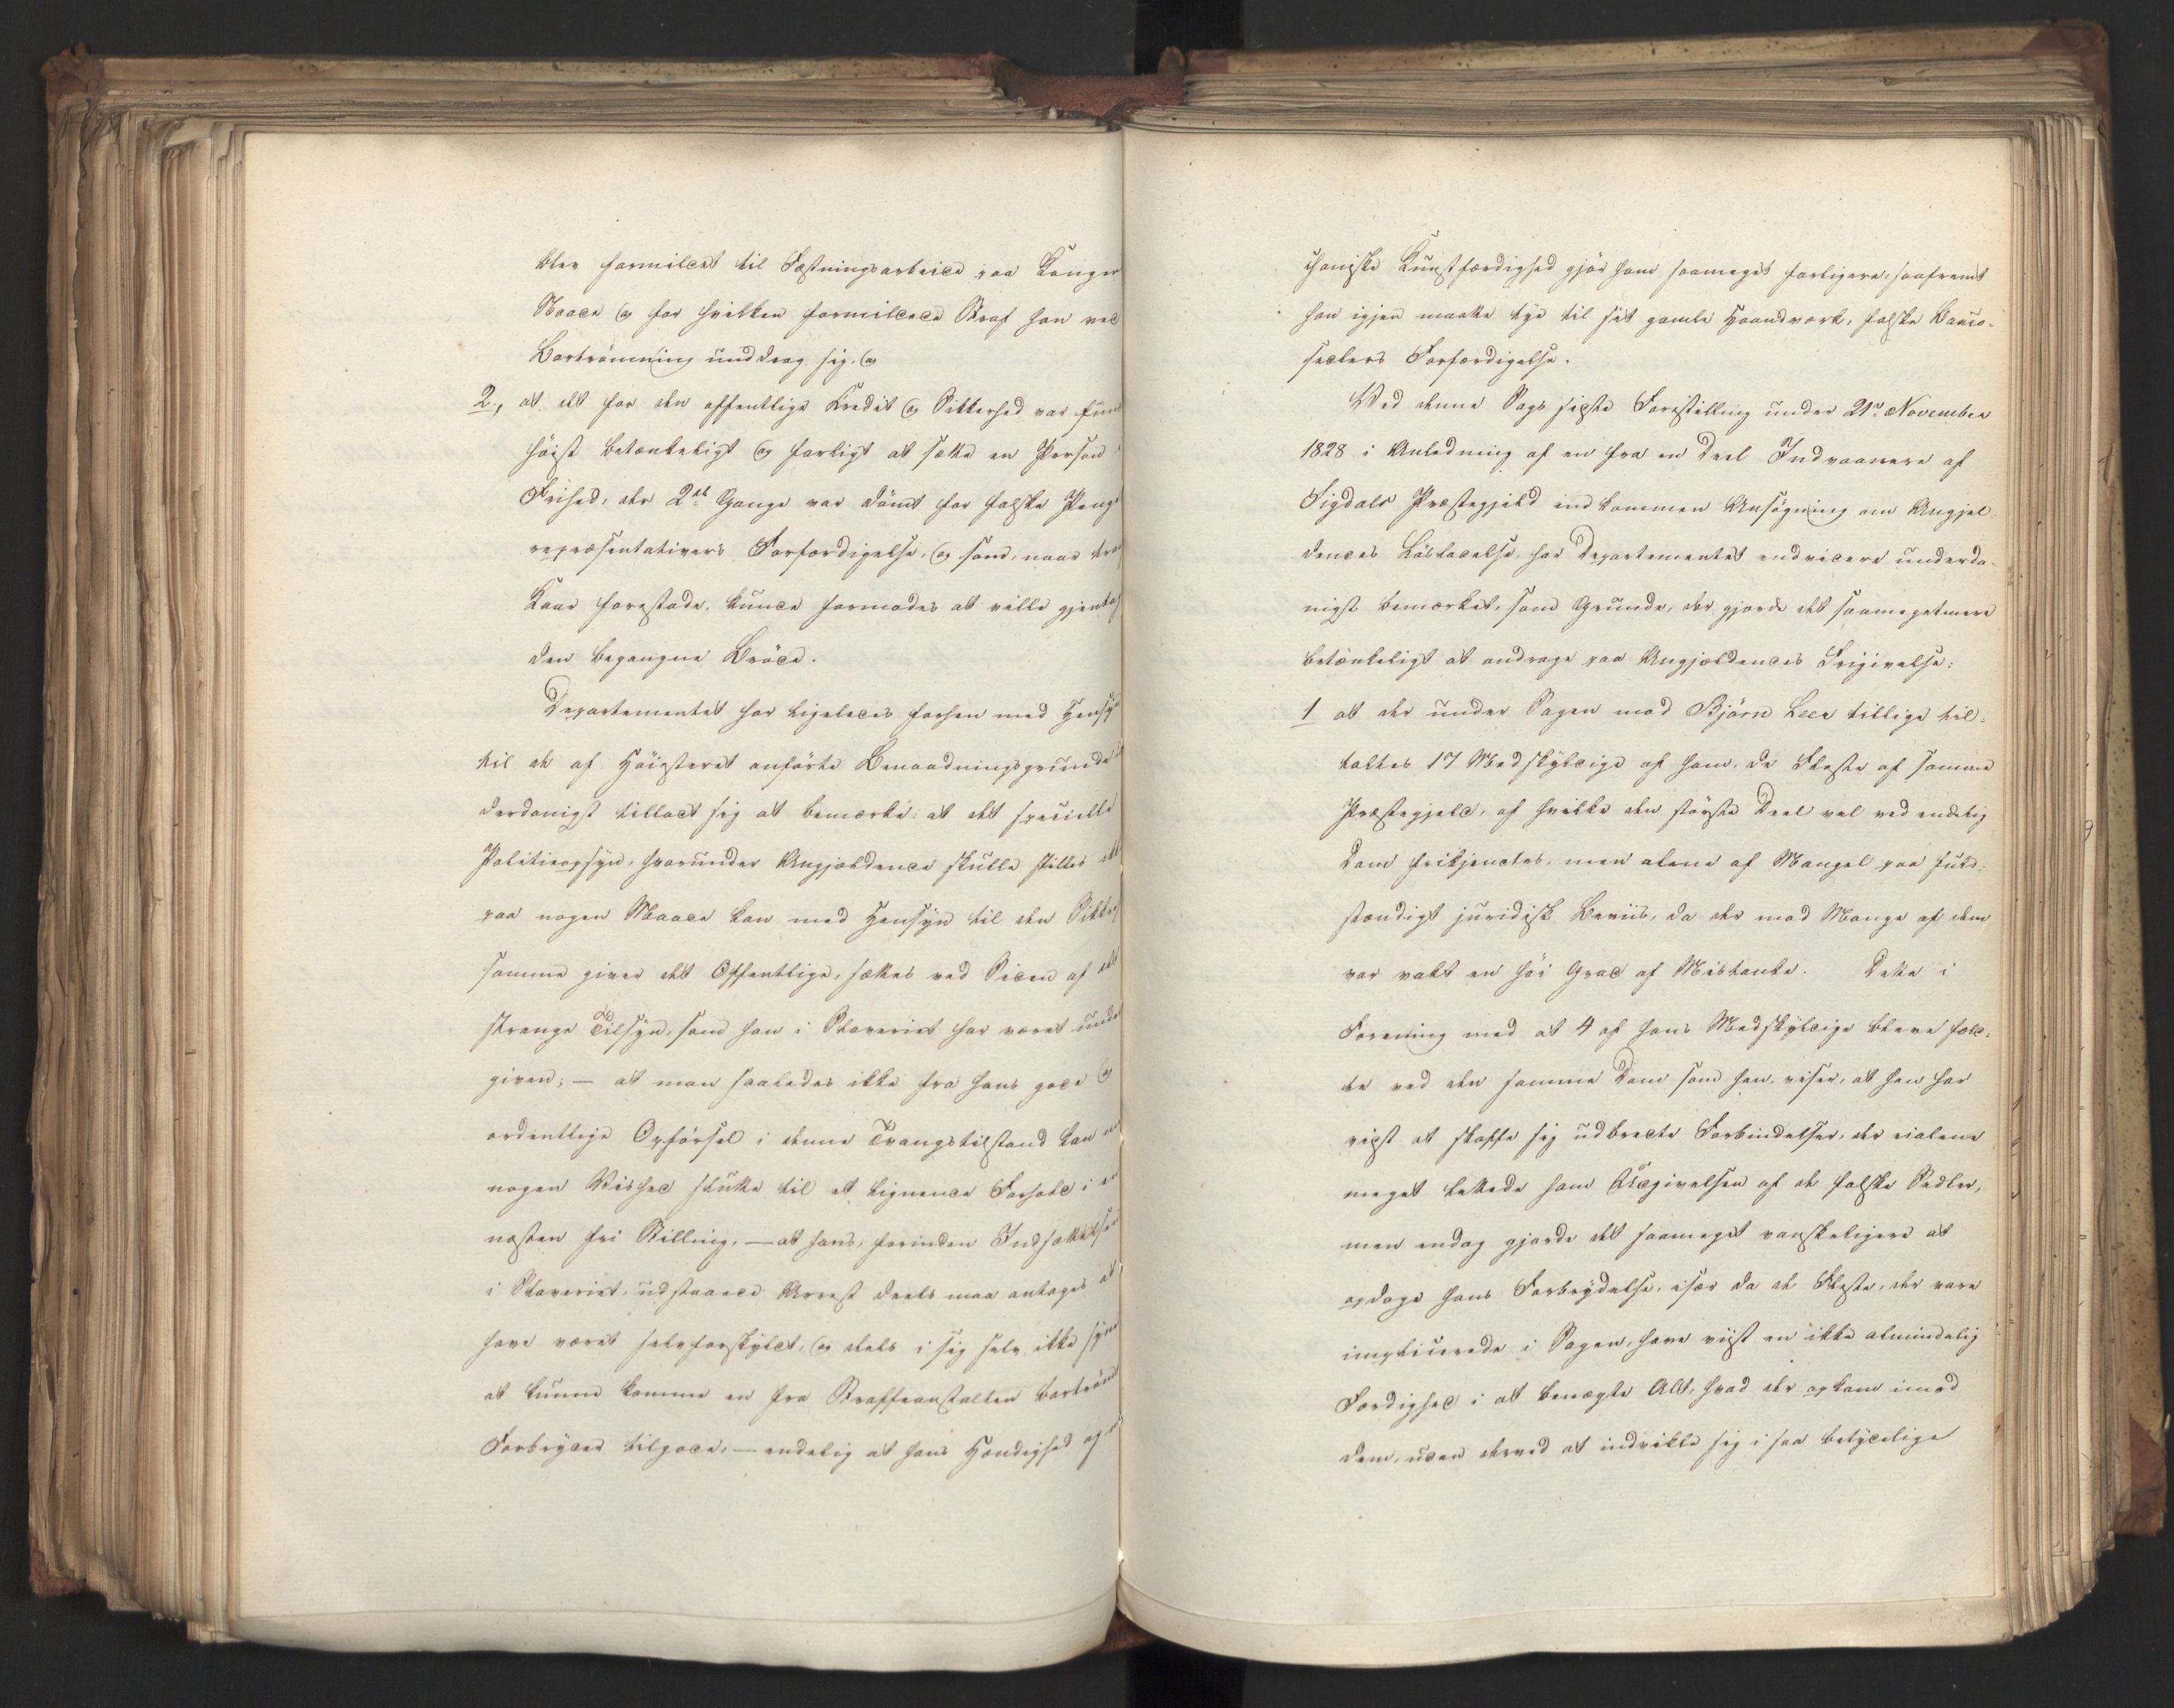 blev formildet til Fæstningsarbeide paa Kongens
Naade og for hvilken formildede Straf han ved
Bortrömning unddrog sig, og
2., at det for den offentlige Kredit og Sikkerhed var
höist betænkeligt og farligt at sætte en Person i
Frihed, der 2de Gange var dömt for falske Penge
repræsentativers Forfærdigelse, og som, naar
Kaar forestode, kunde formodes at ville gjentage
den begangne Bröde.
Departementet har ligeledes forhen med Hensyn
til de af Höiesteret anförte Benaadningsgrunde
derdanigst tilladt sig at bemærke: at det specielle
Politieopsyn, hvorunder Angjældende skulde stilles
paa nogen Maade kan med Hensyn til den
samme giver det Offentlige, sættes ved Siden af det
strenge Tilsyn, som han i Slaveriet har været under
given; — at man saaledes ikke fra hans gode og
ordentlige Opförsel i denne Tvangstilstand kan
nogen Vished slutte til et lignende Forhold i en
næsten fri Stilling, — at hans, forinden Indsættelsen
i Slaveriet, udstaaede Arrest deels maa antages at
have været selvforskyldt, og deels i sig selv ikke synes
at kunne komme en fra Straffeanstalten bortrömt
Forbryder tilgode, — endelig at hans Hændighed og
chaniske Kunstfærdighed gjör ham saameget farligere, saafremt
han igjen maatte tye til sit gamle Haandværk, falske Banco-
sedlers Forfærdigelse.
Ved denne Sags sidste Forestilling under 21de November
1828 i Anledning af en fra en Deel Indvaanere af
Sigdals Præstegjeld indkommen Ansögning om Angjel-
dendes Lösladelse, har Departementet endvidere underda-
nigst bemærket, som Grunde, der gjorde det saamegetmere
betænkeligt at andrage paa Angjældendes Frigivelse:
1 at der under Sagen mod Björn Lee tillige til-
taltes 17 Medskyldige af ham, de Fleste af samme
Præstegjeld, af hvilke den störste Deel vel ved endelig
Dom frikjendtes, men alene af Mangel paa fuld-
stændigt juridisk Beviis, da der mod Mange af dem
var vakt en höi Grad af Mistanke. Dette i
Forening med at 4 af hans Medskyldige bleve fæld-
te ved den samme Dom som han, viser, at han har
vidst at skaffe sig udbredte Forbindelser, der eialene
meget lettede ham Udgivelsen af de falske Sedler,
men endog gjorde det saameget vanskeligere at
opdage hans Forbrydelse, især da de Fleste, der vare
implicerede i Sagen, have viist en ikke almindelig
Færdighed i at benægte Alt, hvad der opkom imod
dem, uden derved at indvikle sig i saa betydelige